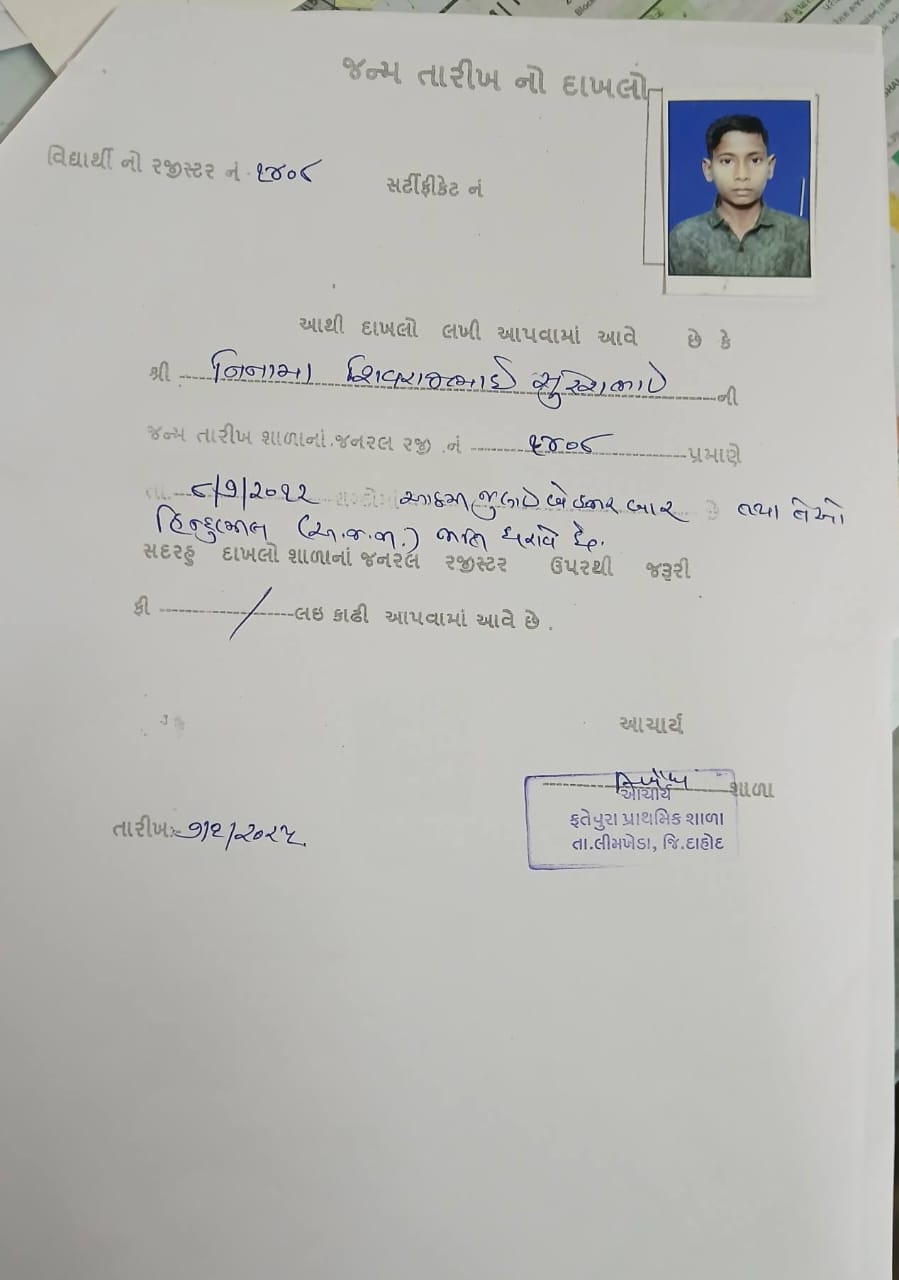 જન્મ તારીખ નો દાખલો
વિદ્યાર્થી નો રજીસ્ટર નં. ૧૪૦૮
સર્ટીફીકેટ નં
આથી દાખલો લખી આપવામાં આવે છે કે
શ્રી નિનામા શિવરાજભાઈ સુરેશભાઈ ની
જન્મ તારીખ શાળાનાં જનરલ રજી .નં ૧૪૦૮ પ્રમાણે
તા. ૮/૭/૨૦૧૨ આઠમી જુલાઈ બે હજાર બાર તથા તેઓ
હિન્દુભીલ (અ.જ.જા.) જાતિ ધરાવે છે.
સદરહુ દાખલો શાળાનાં જનરલ રજીસ્ટર ઉપરથી જરૂરી
ફી / લઇ કાઢી આપવામાં આવે છે .
આચાર્ય
શાળા
આચાર્ય
ફતેપુરા પ્રાથમિક શાળા
તા.લીમખેડા, જિ.દાહોદ
તારીખ:- ૭/૨/૨૦૨૫